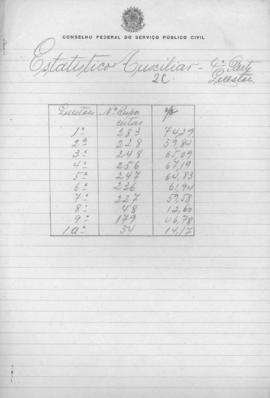 CONSELHO FEDERAL DO SERVIÇO PÚBLICO CIVIL
Estatístico Auxiliar - 4ª Parte
2C
Questões Nº Respo %
1ª 283 74,29
2ª 228 59,84
3ª 248 65,09
4ª 256 67,19
5ª 247 64,83
6ª 236 61,94
7ª 227 59,58
8ª 48 12,60
9ª 179 46,98
10ª 54 14,17